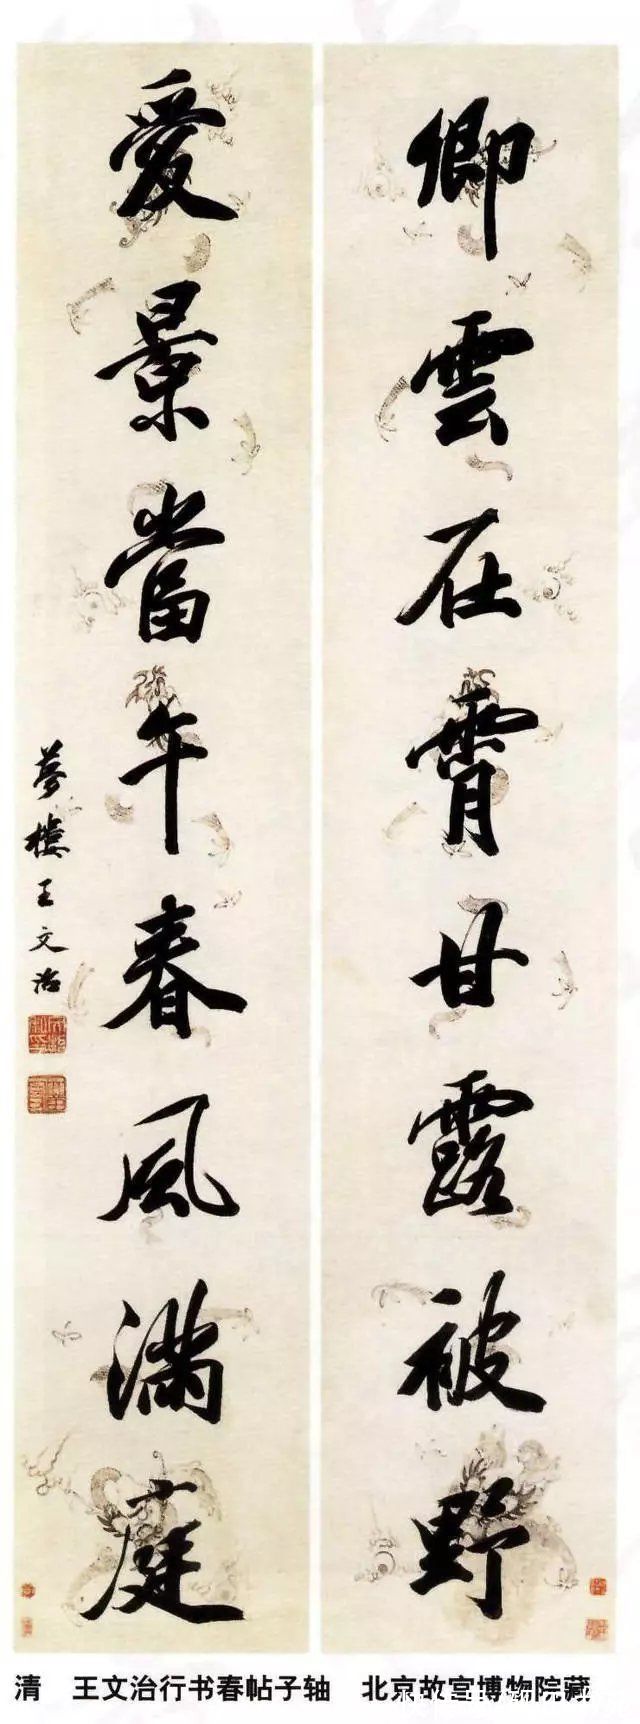 卿雲在霄甘露被野
愛景當午春風滿庭
夢樓王文治
清 王文治行书春帖子轴 北京故宫博物院藏